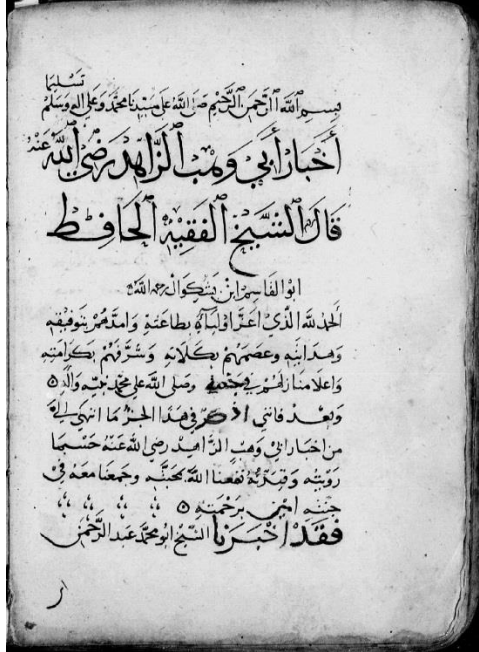 تسليما
بسم الله الرحمن الرحيم صلى الله على سيدنا محمد وعلى اله وسلم
أخبار أبي وهب الزاهد رضي الله عنه
قال الشيخ الفقيه الحافظ
ابو القاسم ابن بشكوال رحمه الله
الحمد لله الذي اعز اولياءه بطاعته وامدهم بتوفيقه
وهدايته وعصمهم بكلاته وشرفهم بكرامته
واعلا منازلهم في جنته وصلى الله على محمد نبيه واله
وبعد فانني اذكر في هذا الجزء ما انتهى الي
من اخبار ابي وهب الزاهد رضي الله عنه حسبما
رويته وقيدته نفعنا الله بمحبته وجمعنا معه في
جنته امين برحمته
فقد اخبرنا الشيخ ابو محمد عبد الرحمن